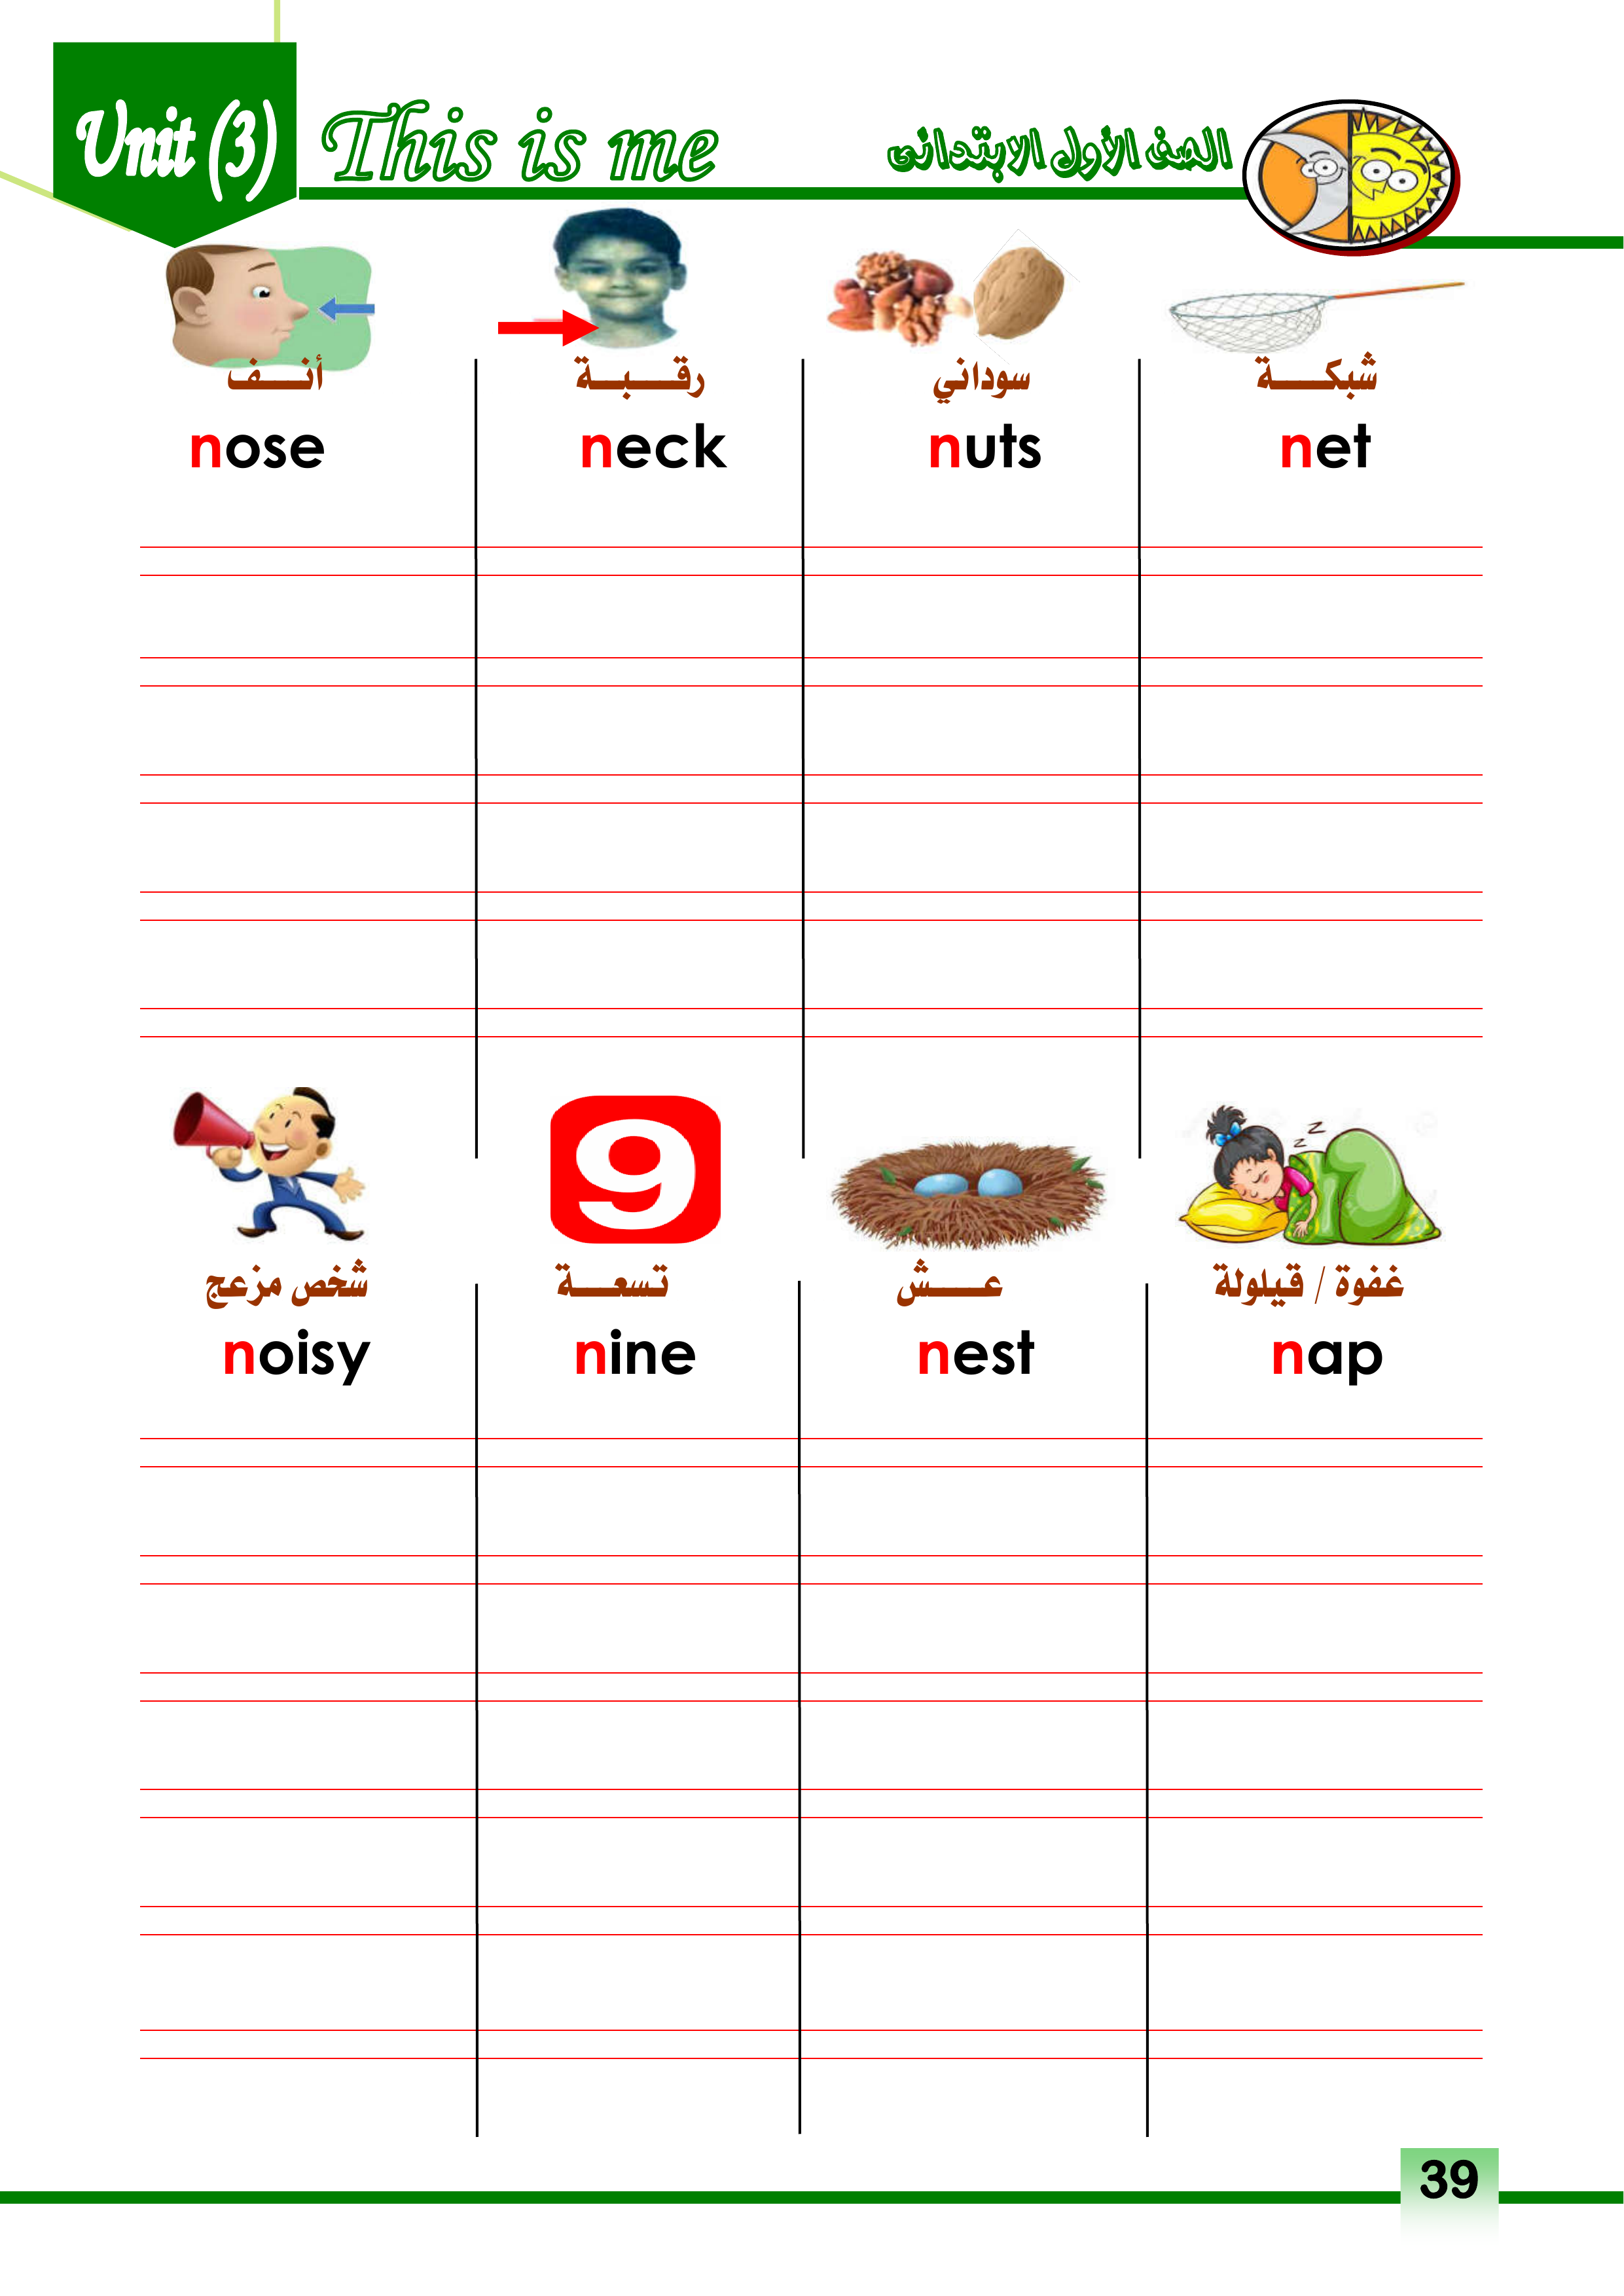 Unit (3) This is me الصف الأول الابتدائى
أنــــف رقــــبــــة سوداني شبكــــة
nose neck nuts net
9
z z
شخص مزعج تسعــــة عــــش غفوة / قيلولة
noisy nine nest nap
39